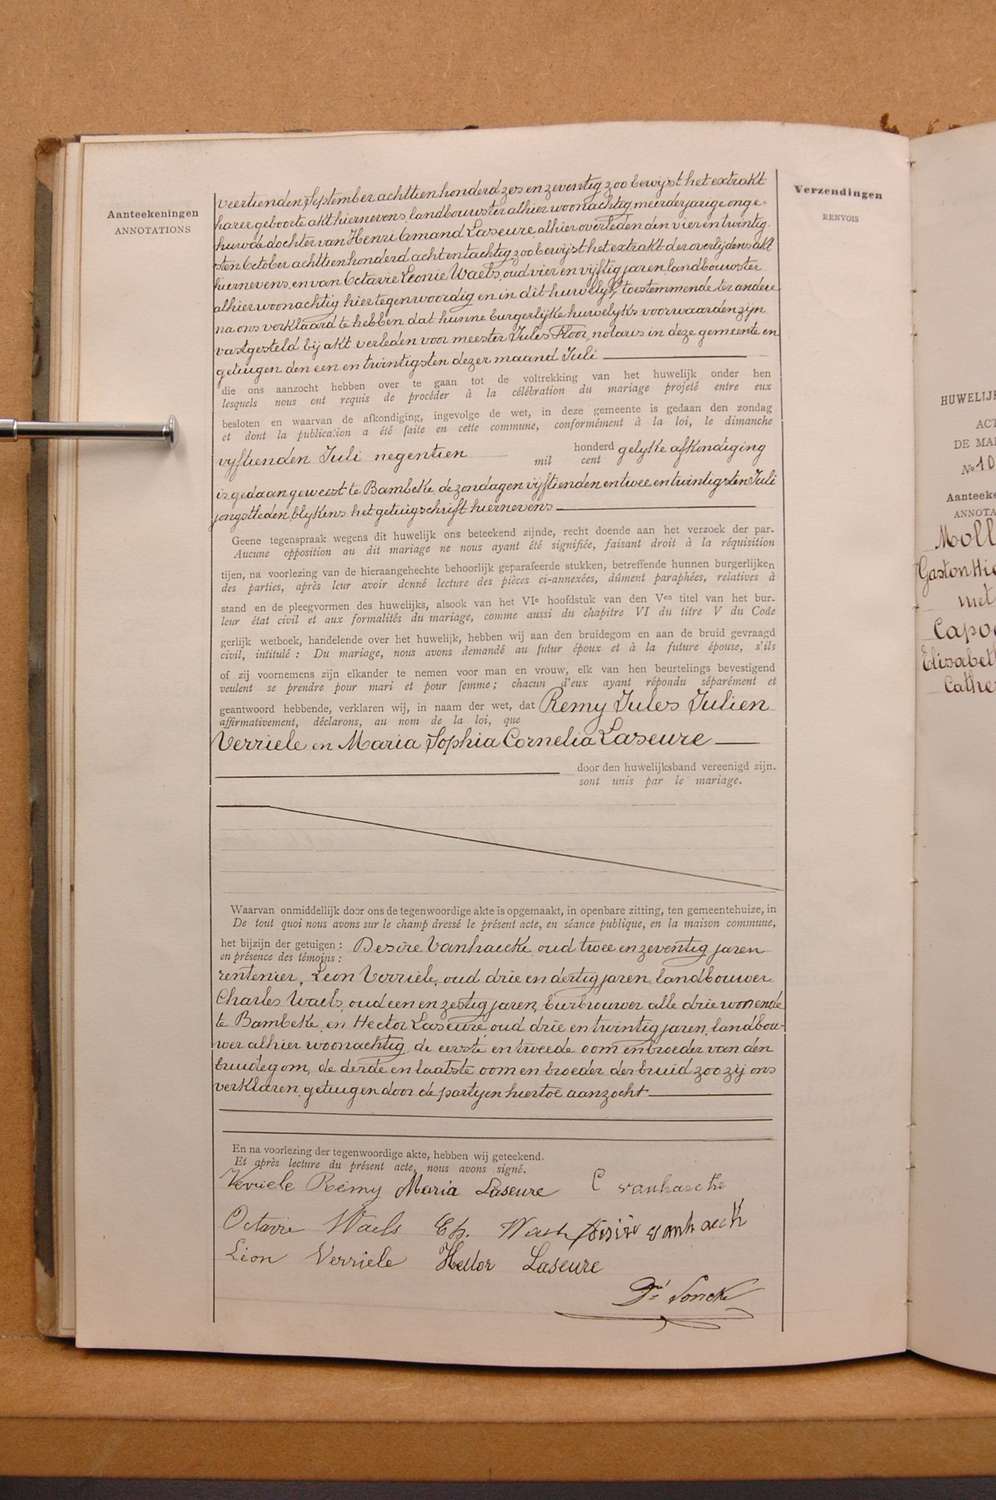 Aanteekeningen
ANNOTATIONS
Verzendingen
RENVOIS
veertienden September achttien honderd zes en zeventig zoo bewijst het extrakt
harer geboorte akt hiernevens, landbouwster alhier woonachtig meerderjarige onge-
huwde dochter van Henri Amand Laseure alhier overleden den vier en twintig-
sten October achttien honderd acht en tachtig zoo bewijst het extrakt der overlijdens akt
hiernevens, en van Octavie Leonie Waels, oud vier en vijftig jaren landbouwster
alhier woonachtig hier tegenwoordig en in dit huwelijk toestemmende ter andere
na ons verklaard te hebben dat hunne burgerlijke huwelyks voorwaarden zijn
vastgesteld bij akt verleden voor meester Jules Floor, notaris in deze gemeente en
getuigen den een en twintigsten dezer maand Juli
die ons aanzocht hebben over te gaan tot de voltrekking van het huwelijk onder hen
lesquels nous ont requis de procéder à la célébration du mariage projeté entre eux
besloten en waarvan de afkondiging, ingevolge de wet, in deze gemeente is gedaan den zondag
et dont la publication a été faite en cette commune, conformément à la loi, le dimanche
vijftienden Juli negentien honderd gelyke afkondiging
mil cent
is gedaan geweest te Bambeke de zondagen vijftienden en twee en twintigsten Juli
jongstleden, blykens het getuigschrift hiernevens
Geene tegenspraak wegens dit huwelijk ons beteekend zijnde, recht doende aan het verzoek der par.
Aucune opposition au dit mariage ne nous ayant été signifiée, faisant droit à la réquisition
tijen, na voorlezing van de hieraangehechte behoorlijk geparafeerde stukken, betreffende hunnen burgerlijken
des parties, après leur avoir donné lecture des pièces ci-annexées, dûment paraphées, relatives à
stand en de pleegvormen des huwelijks, alsook van het VIe hoofdstuk van den Ven titel van het bur.
leur état civil et aux formalités du mariage, comme aussi du chapitre VI du titre V du Code
gerlijk wetboek, handelende over het huwelijk, hebben wij aan den bruidegom en aan de bruid gevraagd
civil, intitulé : Du mariage, nous avons demandé au futur époux et à la future épouse, s'ils
of zij voornemens zijn elkander te nemen voor man en vrouw, elk van hen beurtelings bevestigend
veulent se prendre pour mari et pour femme ; chacun d'eux ayant répondu séparément et
geantwoord hebbende, verklaren wij, in naam der wet, dat Remy Jules Julien
affirmativement, déclarons, au nom de la loi, que
Verriele en Maria Sophia Cornelia Laseure
door den huwelijksband vereenigd zijn.
sont unis par le mariage.
Waarvan onmiddellijk door ons de tegenwoordige akte is opgemaakt, in openbare zitting, ten gemeentehuize, in
De tout quoi nous avons sur le champ dressé le présent acte, en séance publique, en la maison commune,
het bijzijn der getuigen : Desire Vanhaecke oud twee en zeventig jaren
en présence des témoins :
rentenier, Leon Verriele, oud drie en dertig jaren, landbouwer
Charles Waels, oud een en zestig jaren, alle drie wonende
te Bambeke, en Hector Laseure oud drie en twintig jaren, landbou-
wer alhier woonachtig, de eerste en tweede oom en broeder van den
bruidegom, de derde en laatste oom en broeder der bruid zoo zij ons
verklaren, getuigen door de partyen hiertoe aanzocht
En na voorlezing der tegenwoordige akte, hebben wij geteekend.
Et après lecture du présent acte, nous avons signé.
Verriele Remy Maria Laseure C vanhaecke
Octavie Waels Ch. Waels Désiré vanhaecke
Léon Verriele Hector Laseure
Sonck
HUWELIJK
ACT
DE MAR
No 10
Aanteeke
ANNOTA
Moll
Gaston
met
Capo
Elisabeth
Cathe